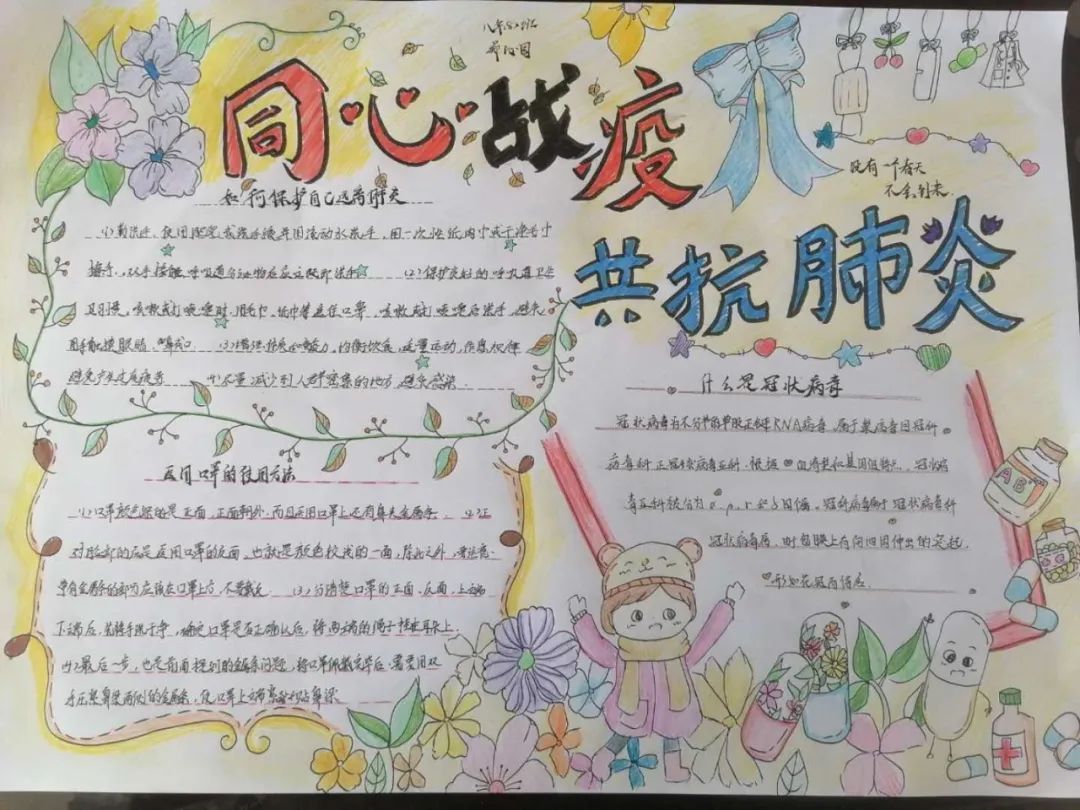 同心战疫
没有一个春天
不会到来
共抗肺炎
如何保护自己远离肺炎
(1)勤洗手,使用肥皂或洗手液并用流动水洗手,用一次性纸巾或干净毛巾
擦手,双手接触呼吸道分泌物后应立即洗手 (2)保护良好的呼吸道卫生
习惯,咳嗽或打喷嚏时,用毛巾、纸巾等遮住口罩,咳嗽或打喷嚏后洗手,避免
用手触摸眼睛、鼻或口 (3)增强体质和免疫力,均衡饮食,适量运动,作息规律
避免产生过度疲劳 (4)尽量减少到人群密集的地方,避免感染.
医用口罩的使用方法
(1)口罩颜色深的是正面,正面朝外,而且医用口罩上还有鼻夹金属条. (2)正
对脸部的应是医用口罩的反面,也就是颜色较浅的一面,除此之外,要注意,
带有金属条的部分应该在口罩上方,不要戴反 (3)分清楚口罩的正面、反面、上端
下端后,先将手洗干净,确定口罩是否正确以后,将两端的绳子挂在耳朵上.
(4)最后一步,也是前面提到的金属条问题,将口罩佩戴完毕后,需要用双
手压紧鼻梁两侧的金属条,使口罩上端紧贴鼻梁
什么是冠状病毒
冠状病毒为不分节的单股正链RNA病毒,属于巢病毒目冠科
病毒科正冠状病毒亚科,根据血清型和基因组特点,冠状病
毒亚科被分为
冠状病毒属,
形如花冠而得名.
A B